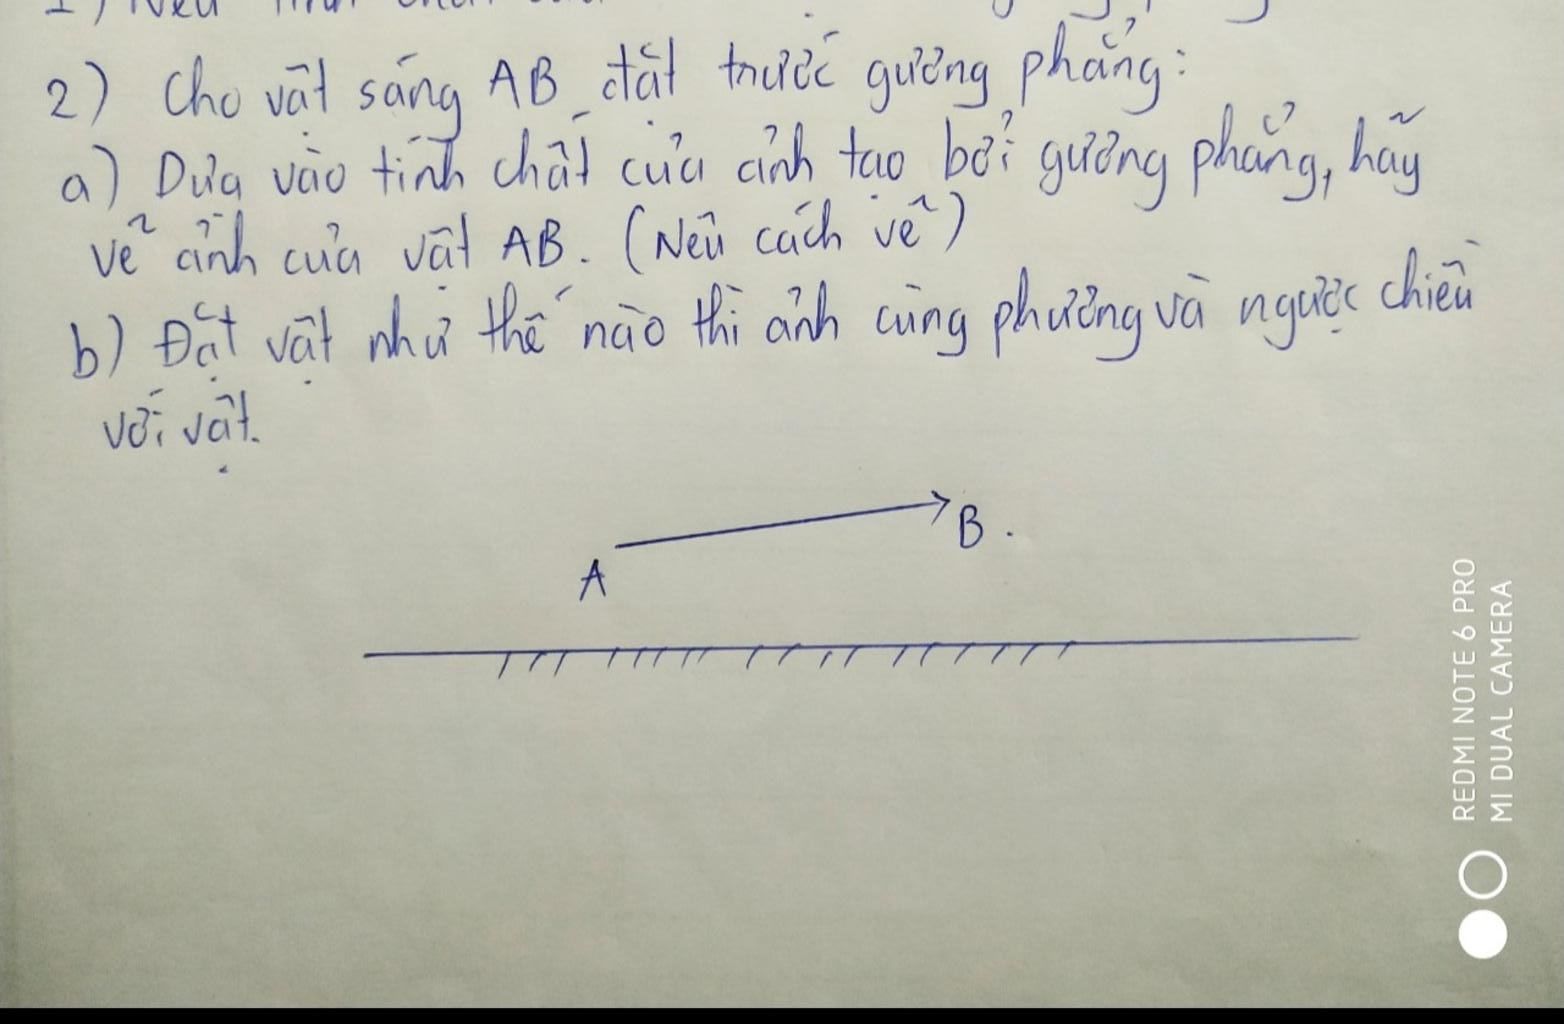 2) Cho vật sáng AB đặt trước gương phẳng:
a) Dựa vào tính chất của ảnh tạo bởi gương phẳng, hãy
vẽ ảnh của vật AB. (Nêu cách vẽ)
b) Đặt vật như thế nào thì ảnh cùng phương và ngược chiều
với vật.
B.
A
REDMI NOTE 6 PRO
MI DUAL CAMERA